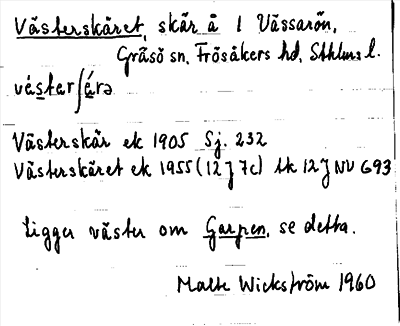 Västerskäret, skär å l Vässarön,
Gräsö sn, Frösåkers hd, Sthlms l.
väster ʃä́rə
Västerskär ek 1905 Sj. 232
Västerskäret ek 1955 (12 J 7c) tk 12 J NV G93
Ligger väster om Garpen, se detta.
Malte Wickström 1960